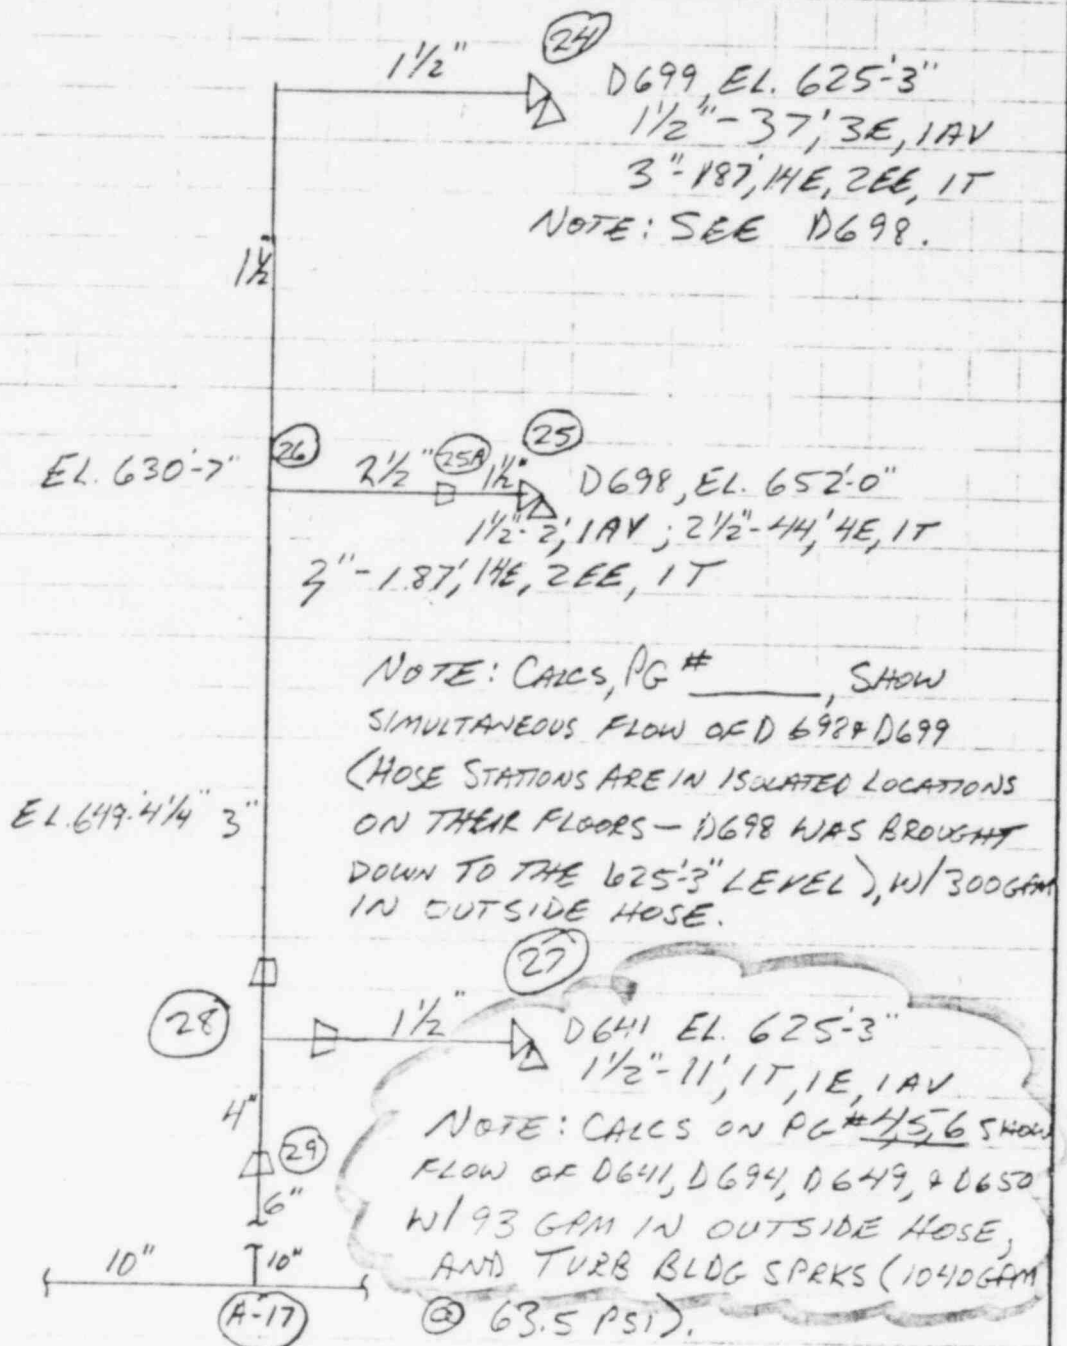 24
1½"
D699, EL. 625'-3"
1½"-37', 3E, 1AV
3"-187', 14E, 2EE, 1T
NOTE: SEE D698.
1½"
26
EL. 630'-7"
2½"
25A
1½"
25
D698, EL. 652'-0"
1½"-2', 1AV; 2½"-44', 4E, 1T
3"-187', 14E, 2EE, 1T
NOTE: CALCS, PG # ______, SHOW
SIMULTANEOUS FLOW OF D692 & D699
(HOSE STATIONS ARE IN ISOLATED LOCATIONS
EL. 649'-4¼" 3"
ON THEIR FLOORS - D698 WAS BROUGHT
DOWN TO THE 625'-3" LEVEL), W/ 300GPM
IN OUTSIDE HOSE.
27
28
1½"
D641 EL. 625'-3"
1½"-11', 1T, 1E, 1AV
4"
NOTE: CALCS ON PG #4,5,6 SHOW
29
FLOW OF D641, D694, D649, & D650
6"
W/ 93 GPM IN OUTSIDE HOSE,
10"
10"
AND TURB BLDG SPRKS (1040GPM
A-17
@ 63.5 PSI).